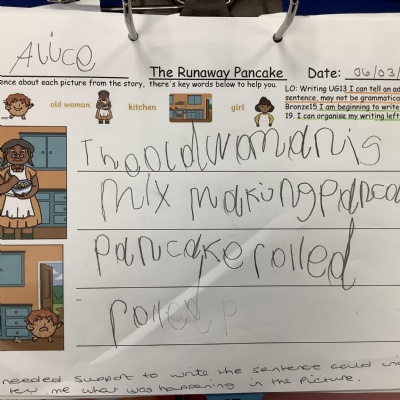 Aluce
The Runaway Pancake
Date: 06/03/
ence about each picture from the story, there's key words below to help you.
old woman
kitchen
girl
LO: Writing UG13 I can tell an ad
sentence, may not be grammatica
Bronze15 I am beginning to write
19. I can organise my writing left
Thooldwomanis
mix makingpanca
pancakerolled
rolledup
needed support to write the sentence could
me what was happening in the picture.